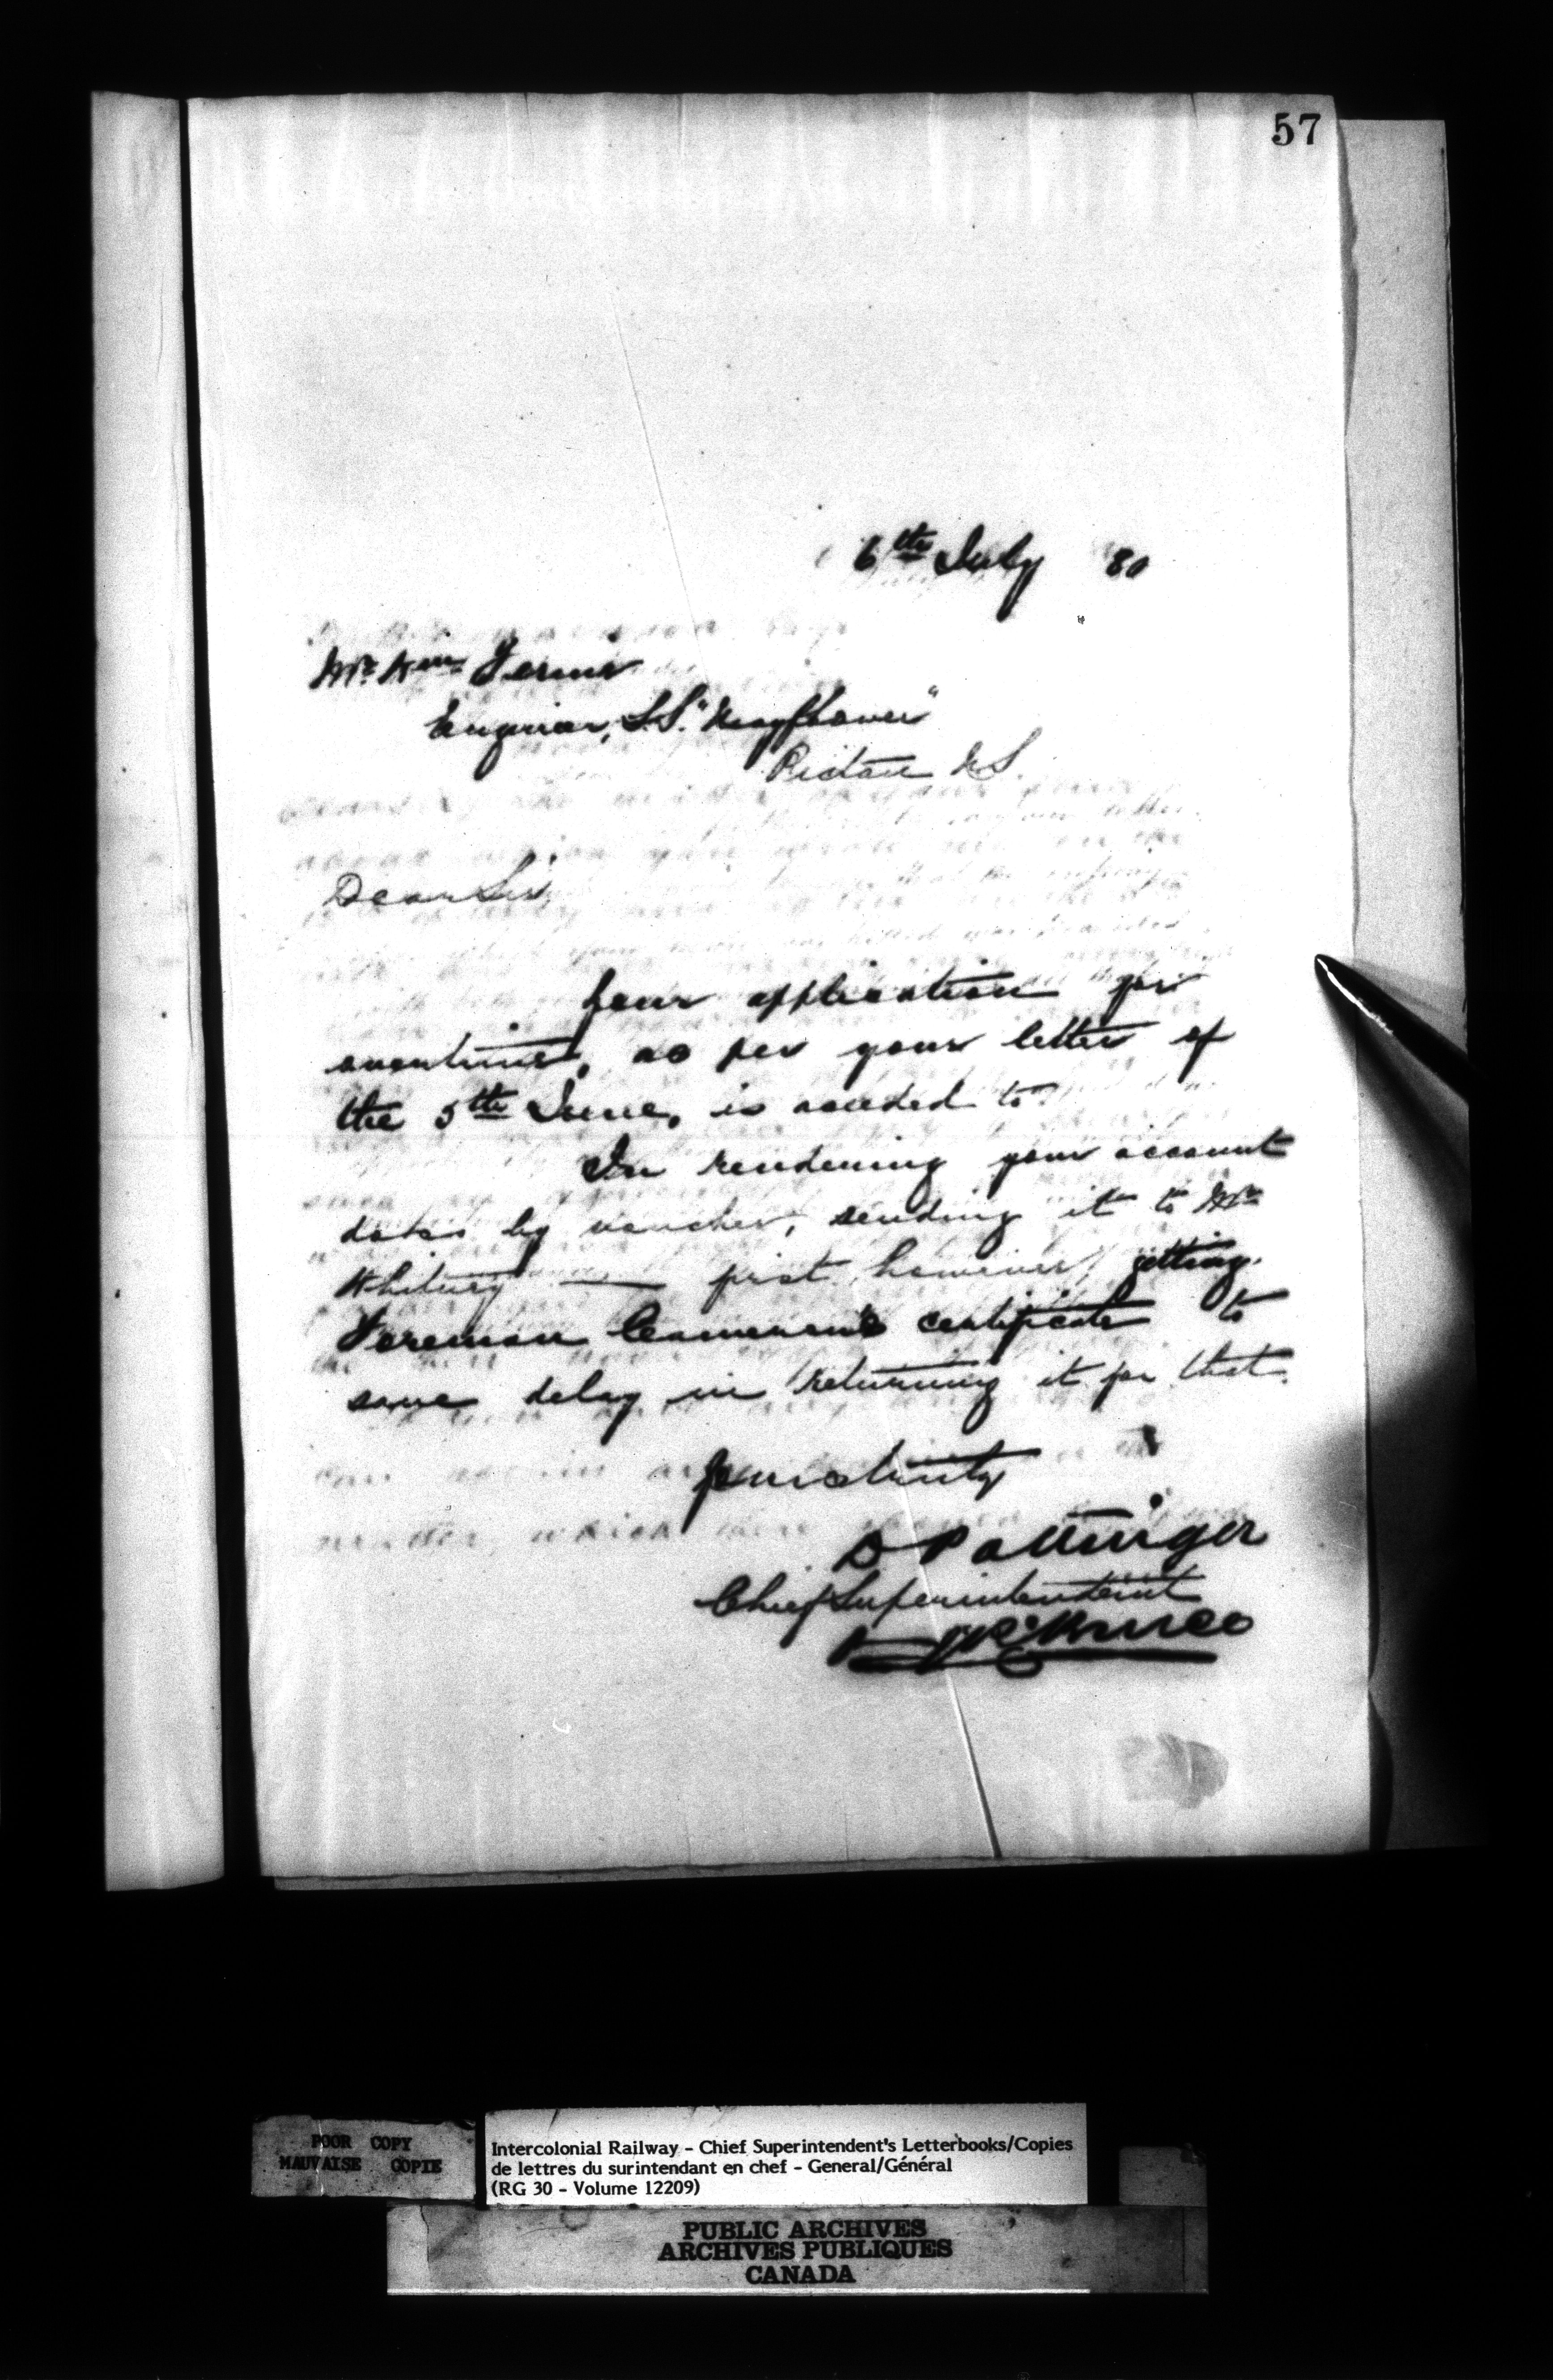 57
6th July 80
Mr Wm
Engineer, S.S. "Mayflower"
Pictou N.S.
Dear Sir,
Your application for
overtime, as per your letter of
the 5th June, is acceded to.
In rendering your account
do so by voucher, sending it to Mr
Whitney — first, however, getting
Foreman Cameron's certificate to
save delay in returning it for that.
Yours truly
D Pottinger
Chief Superintendent
Bruce
POOR COPY
MAUVAISE COPIE
Intercolonial Railway - Chief Superintendent's Letterbooks/Copies
de lettres du surintendant en chef - General/Général
(RG 30 - Volume 12209)
PUBLIC ARCHIVES
ARCHIVES PUBLIQUES
CANADA